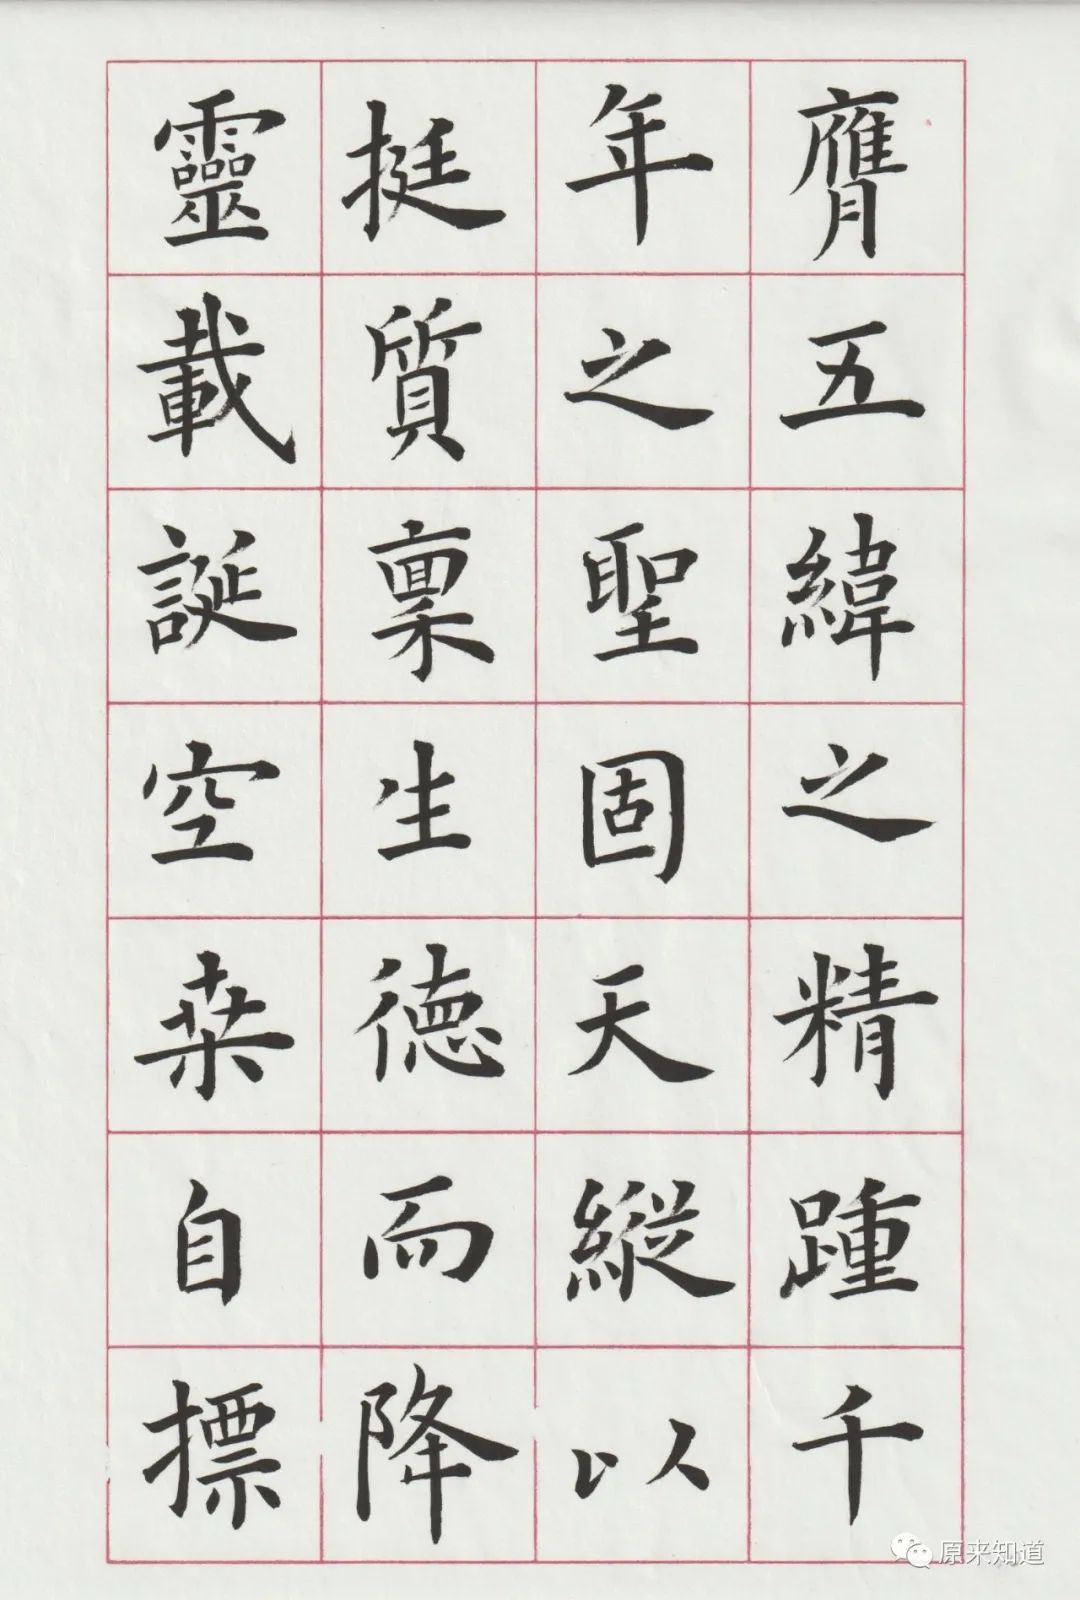 膺五緯之精踵千
年之聖固天縱以
挺質稟生德而降
靈載誕空桒自摽
原来知道